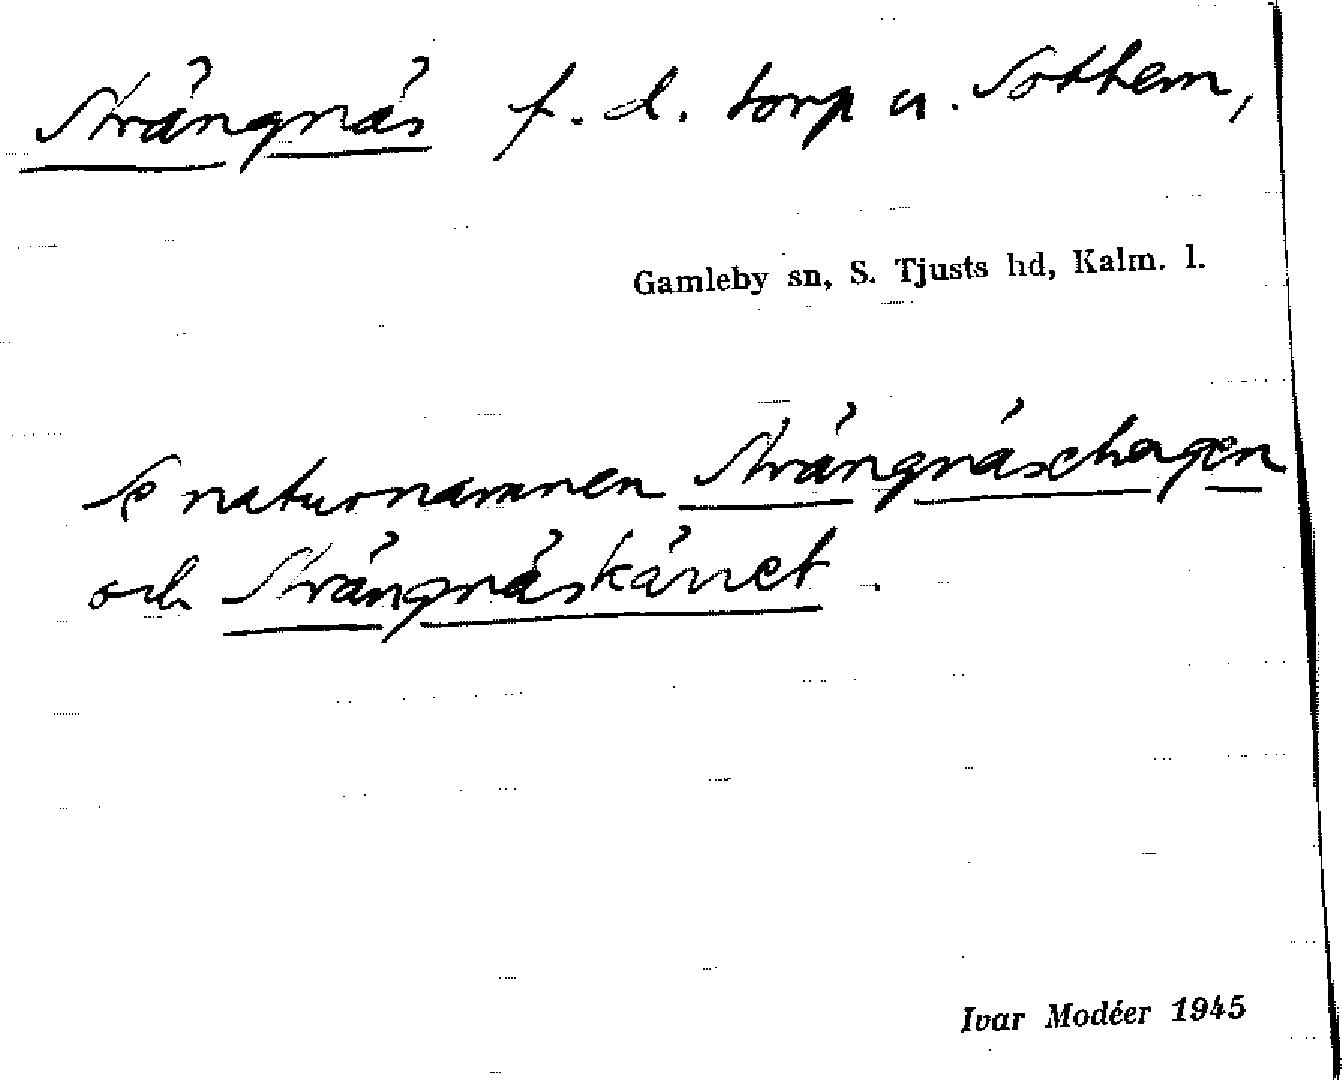 Strängnäs f. d. torp u. Sothem,
Gamleby sn, S. Tjusts hd, Kalm. l.
Se naturnamnen Strängnäsehagen
och Strängnäskärret.
Ivar Modéer 1945